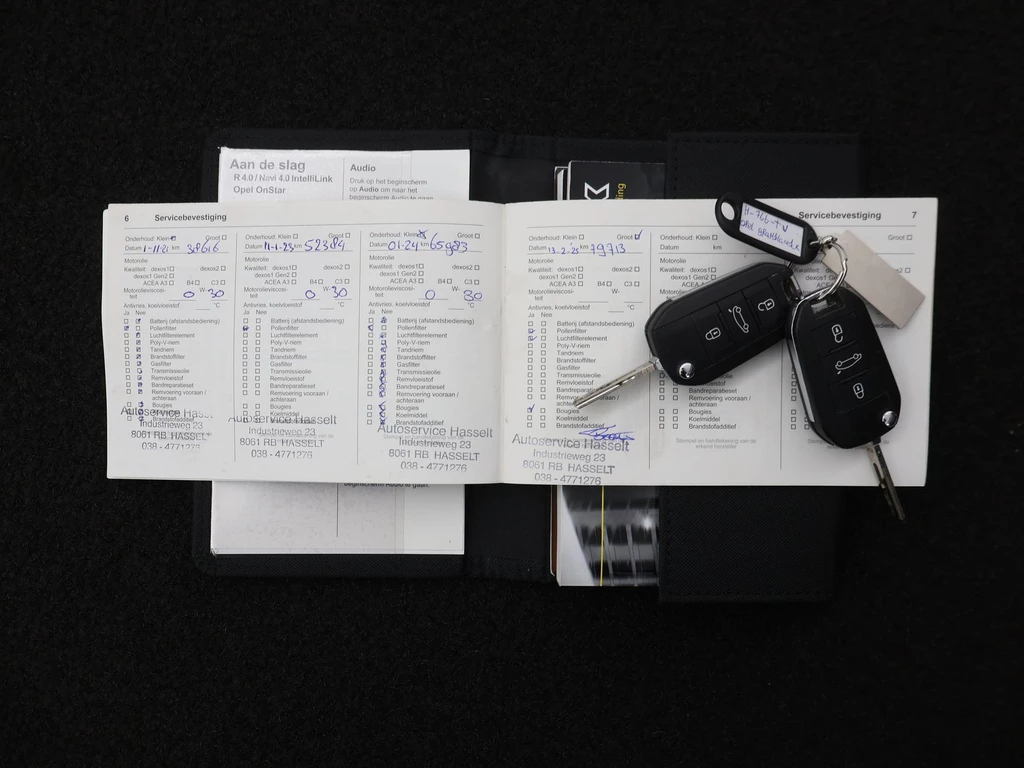 Aan de slag
R 4.0 / Navi 4.0 IntelliLink
Opel OnStar
Audio
Druk op het beginscherm
op Audio om naar het
beginscherm Audio te gaan
6 Servicebevestiging
Onderhoud: Klein Groot
Datum 1-11-21 km 38616
Motorolie
Kwaliteit: dexos1 dexos2
dexos1 Gen2
ACEA A3 B4 C3
Motorolieviscosi- W-
teit 0 30
Antivries, koelvloeistof °C
Ja Nee
Batterij (afstandsbediening)
Pollenfilter
Luchtfilterelement
Poly-V-riem
Tandriem
Brandstoffilter
Gasfilter
Transmissieolie
Remvloeistof
Bandreparatieset
Remvoering vooraan /
achteraan
Bougies
Koelmiddel
Brandstofadditief
Autoservice Hasselt
Industrieweg 23
8061 RB HASSELT
038 - 4771276
Onderhoud: Klein Groot
Datum 11-1-23 km 52384
Motorolie
Kwaliteit: dexos1 dexos2
dexos1 Gen2
ACEA A3 B4 C3
Motorolieviscosi- W-
teit 0 30
Antivries, koelvloeistof °C
Ja Nee
Batterij (afstandsbediening)
Pollenfilter
Luchtfilterelement
Poly-V-riem
Tandriem
Brandstoffilter
Gasfilter
Transmissieolie
Remvloeistof
Bandreparatieset
Remvoering vooraan /
achteraan
Bougies
Koelmiddel
Brandstofadditief
Autoservice Hasselt
Industrieweg 23
8061 RB HASSELT
038 - 4771276
Onderhoud: Klein Groot
Datum 01-24 km 65983
Motorolie
Kwaliteit: dexos1 dexos2
dexos1 Gen2
ACEA A3 B4 C3
Motorolieviscosi- W-
teit 0 30
Antivries, koelvloeistof °C
Ja Nee
Batterij (afstandsbediening)
Pollenfilter
Luchtfilterelement
Poly-V-riem
Tandriem
Brandstoffilter
Gasfilter
Transmissieolie
Remvloeistof
Bandreparatieset
Remvoering vooraan /
achteraan
Bougies
Koelmiddel
Brandstofadditief
Autoservice Hasselt
Industrieweg 23
8061 RB HASSELT
038 - 4771276
Servicebevestiging 7
Onderhoud: Klein Groot
Datum 13-2-25 km 79713
Motorolie
Kwaliteit: dexos1 dexos2
dexos1 Gen2
ACEA A3 B4 C3
Motorolieviscosi- W-
teit
Antivries, koelvloeistof °C
Ja Nee
Batterij (afstandsbediening)
Pollenfilter
Luchtfilterelement
Poly-V-riem
Tandriem
Brandstoffilter
Gasfilter
Transmissieolie
Remvloeistof
Bandreparatieset
Remvoering vooraan /
achteraan
Bougies
Koelmiddel
Brandstofadditief
Autoservice Hasselt
Industrieweg 23
8061 RB HASSELT
038 - 4771276
Onderhoud: Klein
Datum km
Motorolie
Kwaliteit: dexos1
H-766-TV